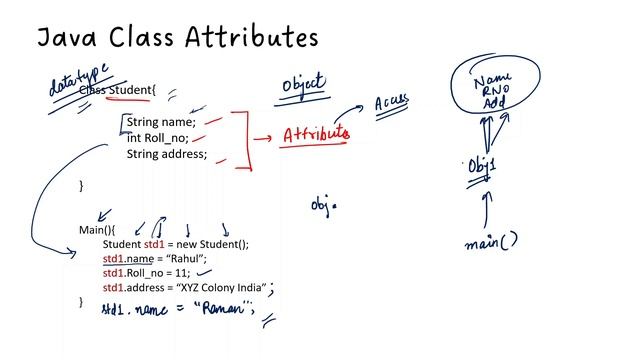 Java Class Attributes
datatype
Class Student{
String name;
int Roll_no;
String address;
}
Object
Attributes
Access
obj.
Name
RNo
Add
Obj1
main()
Main(){
Student std1 = new Student();
std1.name = “Rahul”;
std1.Roll_no = 11;
std1.address = “XYZ Colony India” ;
}
std1.name = "Raman";